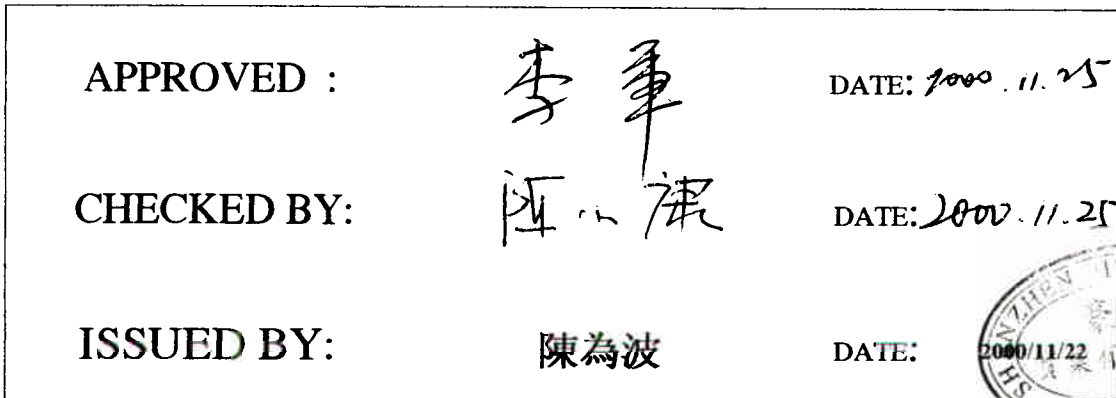 APPROVED : 李軍 DATE: 2000.11.25
CHECKED BY: DATE: 2000.11.25
ISSUED BY: 陳為波 DATE: 2000/11/22
SHENZHEN